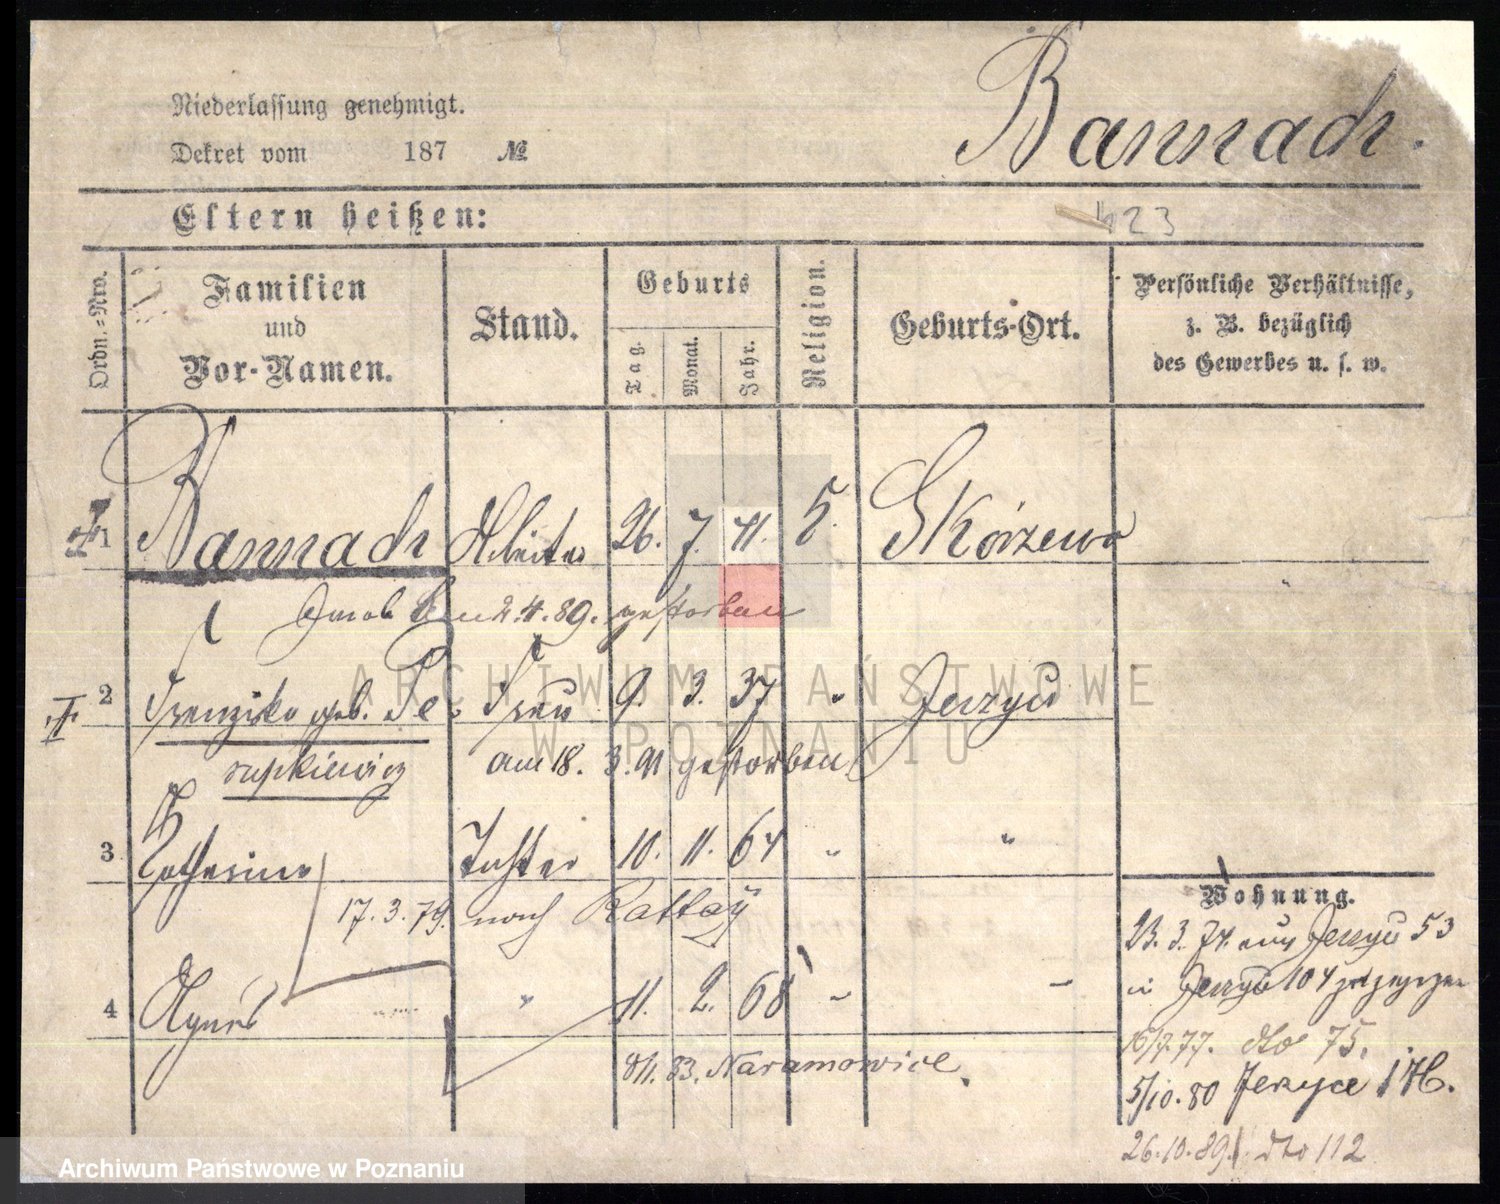 Niederlassung genehmigt.
Dekret vom 187 №
Bannach.
Eltern heißen:
423
Ordn.-Nro.
Familien
und
Vor-Namen.
Stand.
Geburts
Tag.
Monat.
Jahr.
Religion.
Geburts-Ort.
Persönliche Verhältnisse,
z. B. bezüglich
des Gewerbes u. s. w.
1 Bannach Arbeiter 26. 7. 41. Skórzewo
Jacob am 2.4.89. gestorben
2 Franziska geb. Pe- Frau 9. 3. 37 " Jerzyce
rupkiewicz am 18. 3. 91 gestorben
3 Catharina Tochter 10. 11. 64 " "
17.3.79. nach Rattay
4 Agnes " 11. 2. 68 " -
8/1. 83. Naramowice.
Wohnung.
23. 3. 74. aus Jerzyce 53
in Jerzyce 104 zugezogen
16/9.77. dto 75.
5/10.80 Jerzyce 176.
26.10.89. dto 112
ARCHIWUM PAŃSTWOWE
W POZNANIU
Archiwum Państwowe w Poznaniu